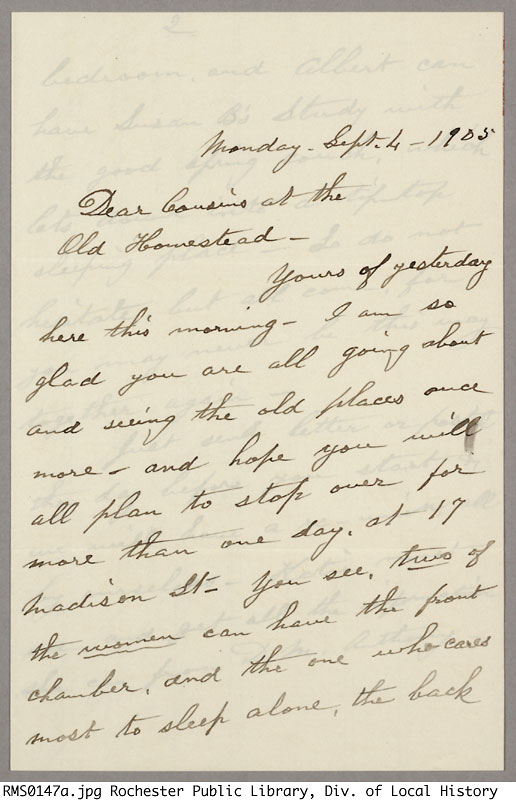 Monday - Sept. 4 - 1905
Dear Cousins at the
Old Homestead -
Yours of yesterday
here this morning - I am so
glad you are all going about
and seeing the old places once
more - and hope you will
all plan to stop over for
more than one day, at 17
Madison St - You see, two of
the women can have the front
chamber, and the one who cares
most to sleep alone, the back
2
bedroom, and Albert can
have Susan B's Study with
the good
sleeping place - So do not
RMS0147a.jpg Rochester Public Library, Div. of Local History